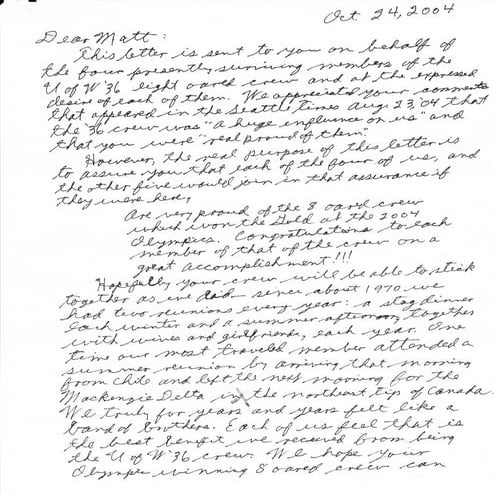 Oct. 24, 2004
Dear Matt:
This letter is sent to you on behalf of
the four presently surviving members of the
U of W '36 eight oared crew and at the expressed
desire of each of them. We appreciated your comments
that appeared in the Seattle times Aug. 23, '04 that
the '36 crew was "a huge influence on us" and
that you were "real proud of them."
However, the real purpose of this letter is
to assure you that each of the four of us, and
the other five would join in that assurance if
they were here,
Are very proud of the 8 oared crew
which won the Gold at the 2004
Olympics. Congratulations to each
member of that of the crew on a
great accomplishment!!!
Hopefully your crew will be able to stick
together as we did since about 1970 we
had two reunions every year: a stag dinner
each winter and a summer afternoon, together
with wives and girlfriends, each year. One
time our most traveled member attended a
summer reunion by arriving that morning
from Chile and left the next morning for the
Mackenzie Delta in the northwest tip of Canada.
We truly for years and years felt like a
band of brothers. Each of us feel that is
the best benefit we received from being
the U of W '36 crew. We hope your
Olympic winning 8 oared crew can